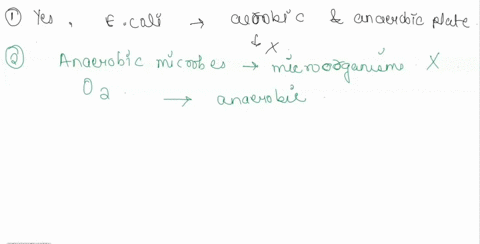 ① Yes, E.cali → aerobic & anaerobic plate
↓ X
② Anaerobic microbes → microorganisms X
O2 → anaerobic